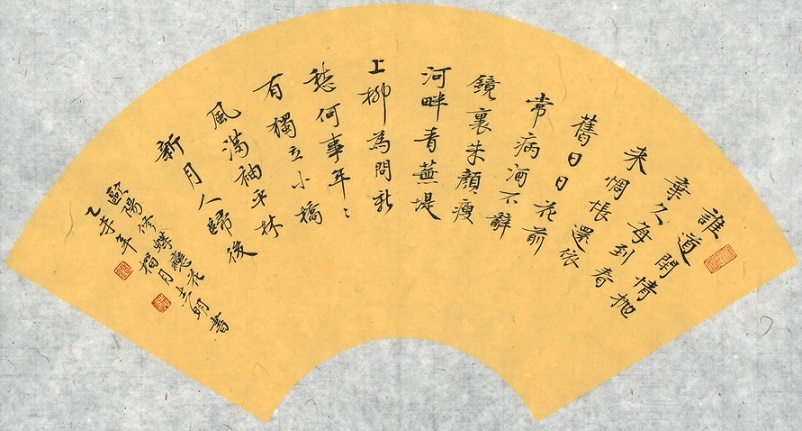 誰道閑情抛
棄久每到春
来惆悵還依
舊日日花前
常病酒不辭
鏡裏朱顏瘦
河畔青蕪堤
上柳為問新
愁何事年〻
有獨立小橋
風滿袖平林
新月人歸後
歐陽修蝶戀花明書
乙年榴月